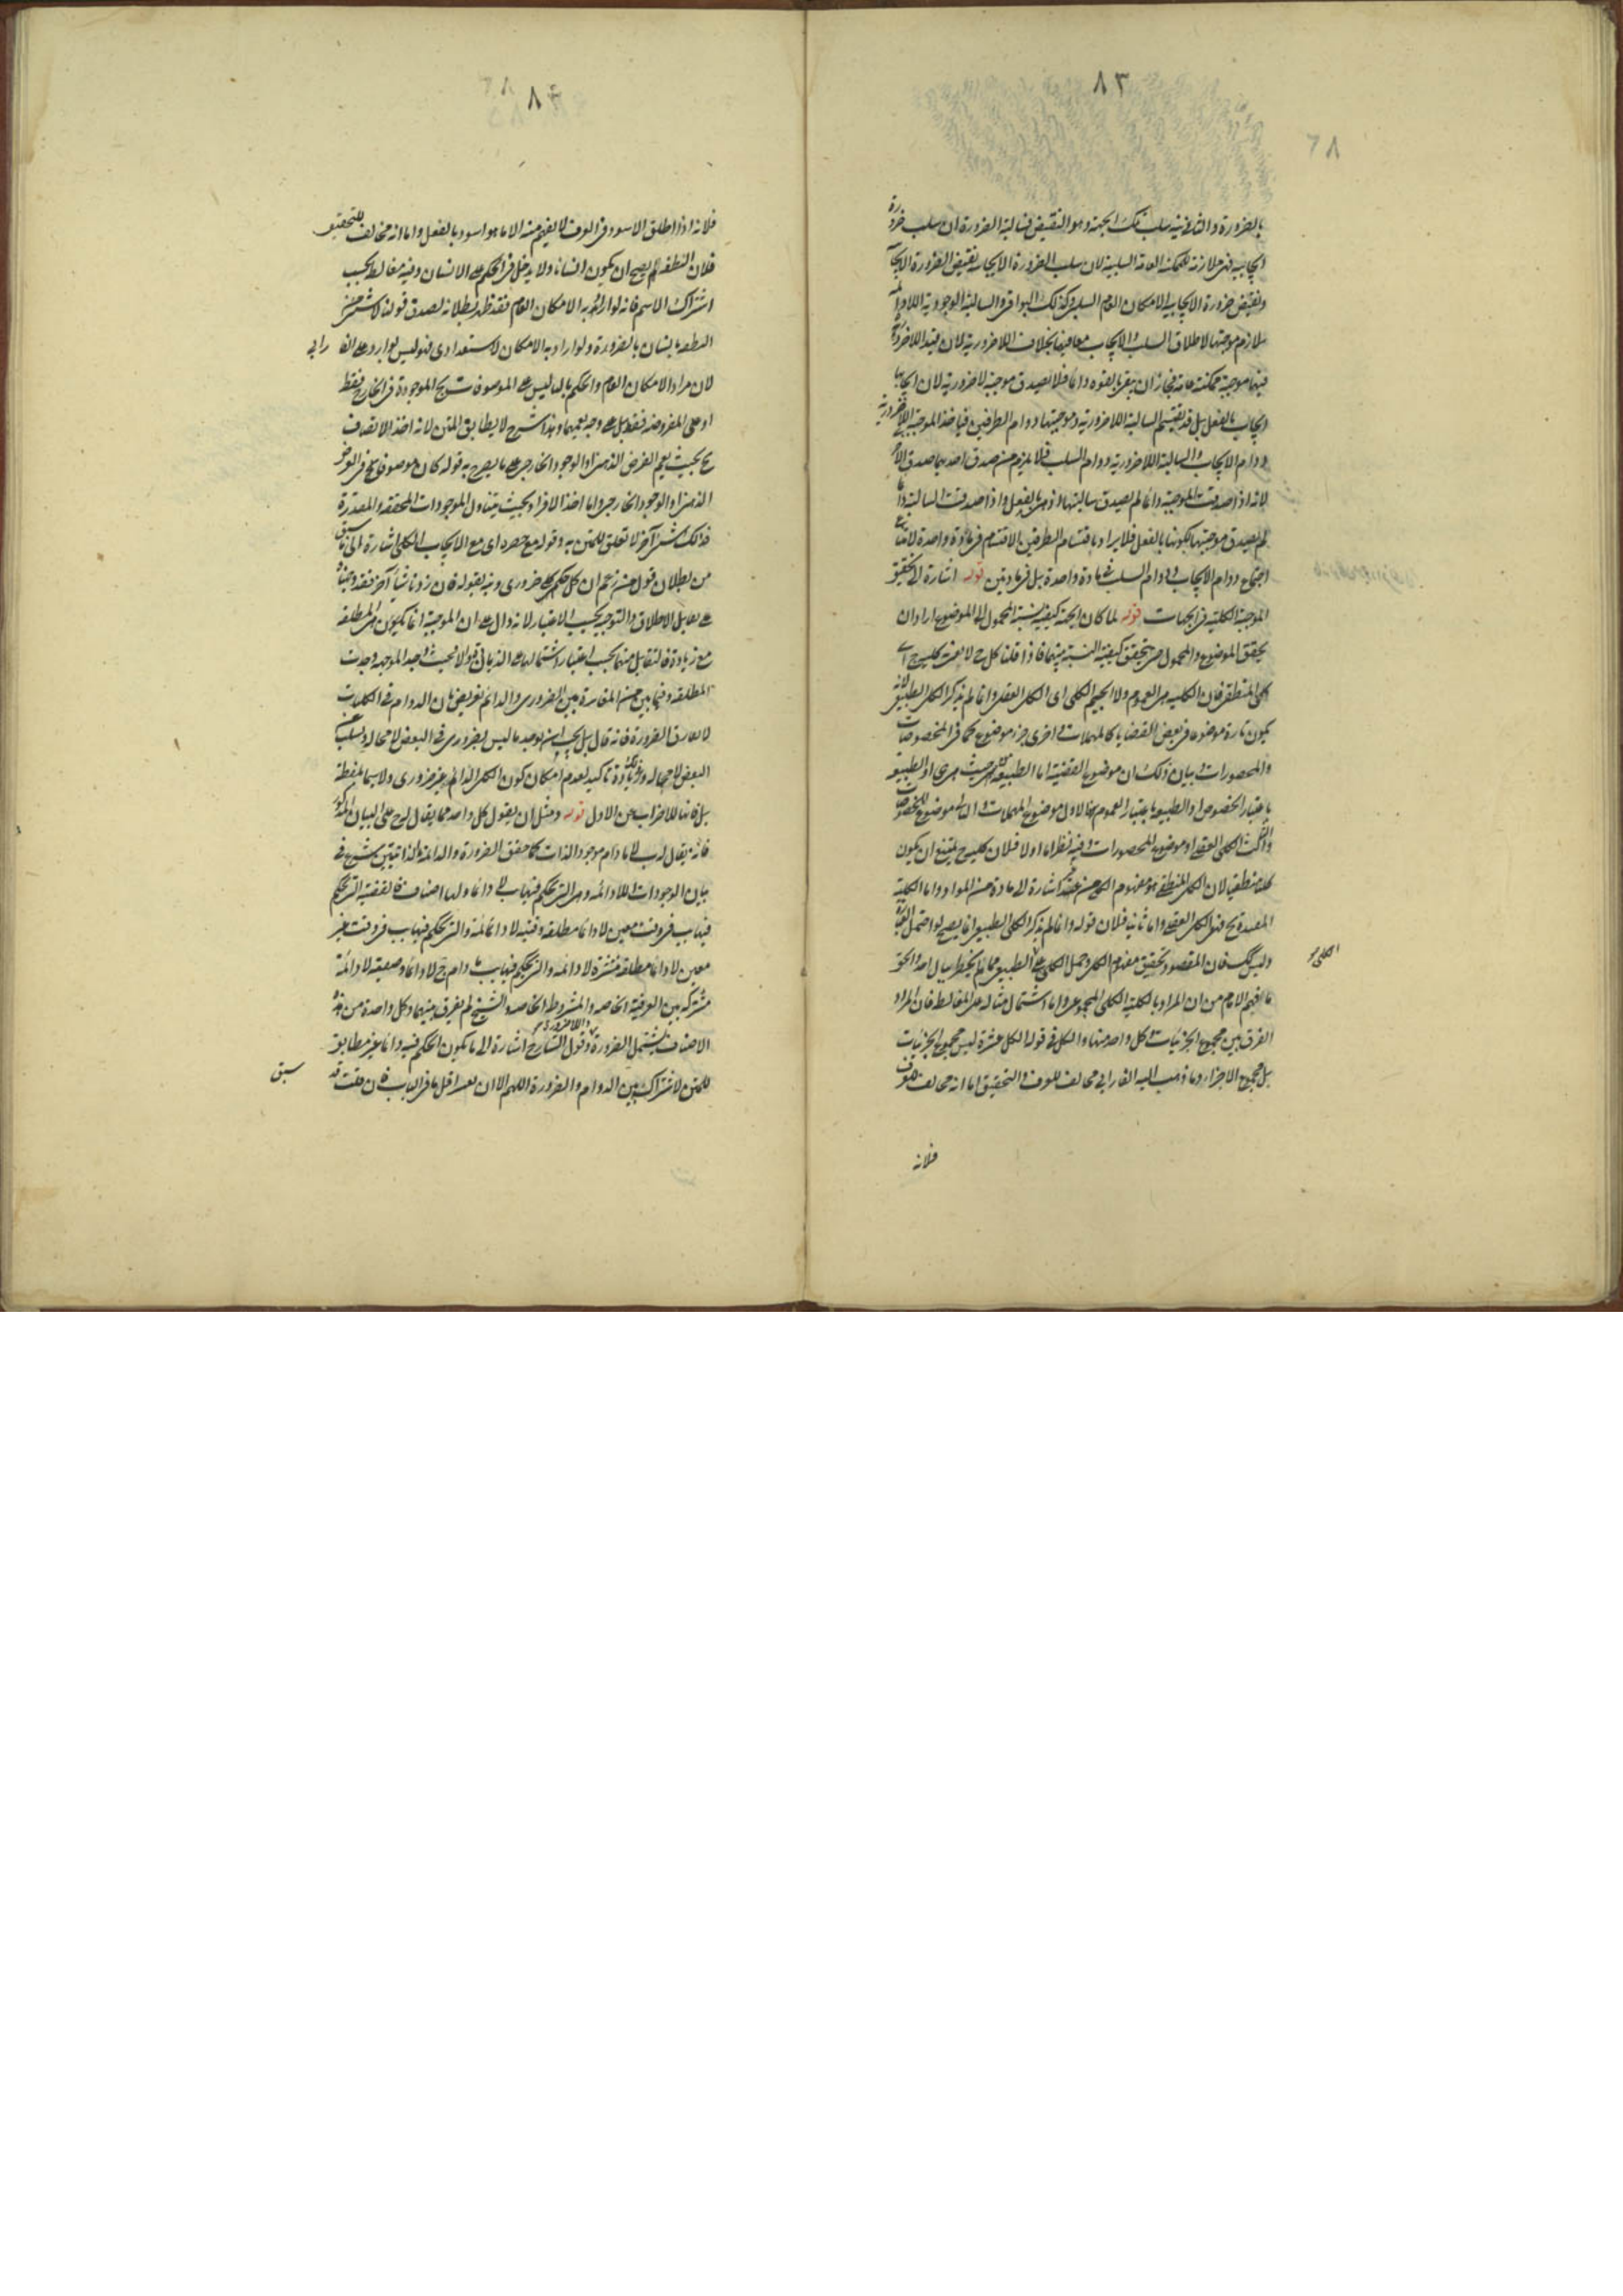 ٨٣
٦٨
بالضرورة والثانية سلب تلك الجهة وهو النقيض فسالبة الضرورة ان سلب ضرورة
ايجابية فهى ملازمة للممكنة العامة السلبية لان سلب الضرورة الايجابية نقيض الضرورة الايجابية
ونقيض ضرورة الايجاب الامكان العام السلبى وكذلك البواقى والسالبة الوجودية اللادائمة
ملازم موجبتها لاطلاق السلب والايجاب معا فيها بخلاف اللاضرورية لان قيد اللاضرورة
فيها موجبة ممكنة عامة فجاز ان يبقى بالقوة دائما فلا يصدق موجبة لاضرورية لان ايجابها
ايجاب بالفعل بل قد يقتسم السالبة اللاضرورية وموجبتها دوام الطرفين فياخذ الموجبة اللاضرورية
دوام الايجاب والسالبة اللاضرورية دوام السلب فلا يلزم من صدق احدهما صدق الاخر
لانه اذا صدقت الموجبة دائما لم يصدق سالبتها اذ هى بالفعل واذا صدقت السالبة دائما
لم يصدق موجبتها لكونها بالفعل فلا يراد باقتسام الطرفين الاقتسام فى مادة واحدة لامتناع
اجتماع دوام الايجاب ودوام السلب فى مادة واحدة بل فى مادتين قوله اشارة الى تحقيق
الموجبة الكلية فى الجهات قوله لما كان الجهة كيفية نسبة المحمول الى الموضوع اراد ان
يحقق الموضوع والمحمول حتى يتحقق كيفية النسبة بينهما فاذا قلنا كل ج لا نعنى كلية ج اى
كلى المنطقى فان الكلية هى العموم ولا الجيم الكلى اى الكلى العقلى وانما لم يذكر الكلى الطبيعى لانه
يكون تارة موضوعا فى بعض القضايا كالمهملات واخرى جزء موضوع كما فى المخصوصات
والمحصورات وبيان ذلك ان موضوع القضية اما الطبيعة من حيث هى هى او الطبيعة
باعتبار الخصوص او الطبيعة باعتبار العموم فالاول موضوع المهملات والثانى موضوع المخصوصات
والثالث الكلى العقلى او موضوع المحصورات وفيه نظر اما اولا فلان كلية ج يمتنع ان يكون
كليا منطقيا لان الكلى المنطقى هو مفهوم الكلى من غير اشارة الى مادة من المواد واما الكلية
المقيدة بج فهى الكلى العقلى واما ثانيا فلان قوله وانما لم يذكر الكلى الطبيعى انما يصح لو احتمل
وليس كك فان المقصود تحقيق مفهوم الكل وحمل الكلى على الطبيعى مما لم يخطر ببال احد والحق
الكلى
ما فهم الامام من ان المراد بالكلية الكلى المجموعى واما اشتمال مثاله على المغالطة فان المراد
الفرق بين مجموع الجزئيات وكل واحد منها والكل فى قولنا الكل عشرة ليس مجموع الجزئيات
بل مجموع الاجزاء وما ذهب اليه الفارابى مخالف للعرف والتحقيق اما انه مخالف للعرف
فلانه
٨٤
فلانه اذا اطلق الاسود فى العرف لا يفهم منه الا ما هو اسود بالفعل واما انه مخالف للتحقيق
فلان النطفة يصح ان يكون انسانا ولا يدخل فى الحكم على الانسان وفيه مغالطة بحسب
اشتراك الاسم فانه لو اراد به الامكان العام فقد ظهر بطلانه لصدق قولنا لا شىء من
النطفة بانسان بالضرورة ولو اراد به الامكان الاستعدادى فهو ليس بوارد على الفارابى
لان مراده الامكان العام والحكم بالباء ليس على الموصوفات بج الموجودة فى الخارج فقط
او على المفروضة فقط بل على وجه يعمهما وهذا شرح لا يطابق المتن لانه اخذ الاتصاف
بج بحيث يعم الفرض الذهنى والوجود الخارجى على ما يصرح به قوله كان موصوفا بج فى الفرض
الذهنى او الوجود الخارجى واما اخذ الافراد بحيث يتناول الموجودات المحققة والمقدرة
فذلك شىء آخر لا تعلق للمتن به وقوله مع حصره اى مع الايجاب الكلى اشارة الى ما سبق
من بطلان قول من زعم ان كل حكم كلى ضرورى ونبه بقوله فان زدنا شيئا آخر فقد وجهناه
على تقابل الاطلاق والتوجيه بحسب الاعتبار لانه دال على ان الموجبة انما يكون هى المطلقة
مع زيادة فالتقابل منهما بحسب اعتبار اشتمالها على الزيادة والا فحيث وجد الموجهة وجدت
المطلقة وفيما بين من المقارنة بين الضرورى والدائم تعريض بان الدوام فى الكليات
لا يفارق الضرورة فانه قال بل يجب ان توجد ما ليس بضرورى فى البعض لا محالة ويسلب عن
البعض لا محالة وفى زيادة تاكيد لعدم امكان كون الكلى الدائم غير ضرورى ولا سيما بلفظة
بل فانها للاضراب عن الاول قوله ومثل ان يقول كل واحد مما يقال له ج على البيان المذكور
فانه يقال له ب لا ما دام موجود الذات لما حقق الضرورة والدائمة الذاتيتين شرع فى
بيان الوجوديات اللادائمة وهى التى حكم فيها ب لا دائما ولها اصناف فالقضية التى حكم
فيها ب فى وقت معين لا دائما مطلقة وقتية لا دائمة والتى حكم فيها ب فى وقت غير
معين لا دائما مطلقة منتشرة لا دائمة والتى حكم فيها ب ما دام ج لا دائما وصفية لا دائمة
مشتركة بين العرفية الخاصة والمشروطة الخاصة والشيخ لم يفرق بينهما وكل واحدة من هذه
الاصناف يشتمل الضرورة واللاضرورة وقول الشارح اشارة الى ما يكون الحكم فيه دائما غير مطابق
للمتن لاشتراك بين الدوام والضرورة اللهم الا ان فى الباب فان قلت قد
سبق